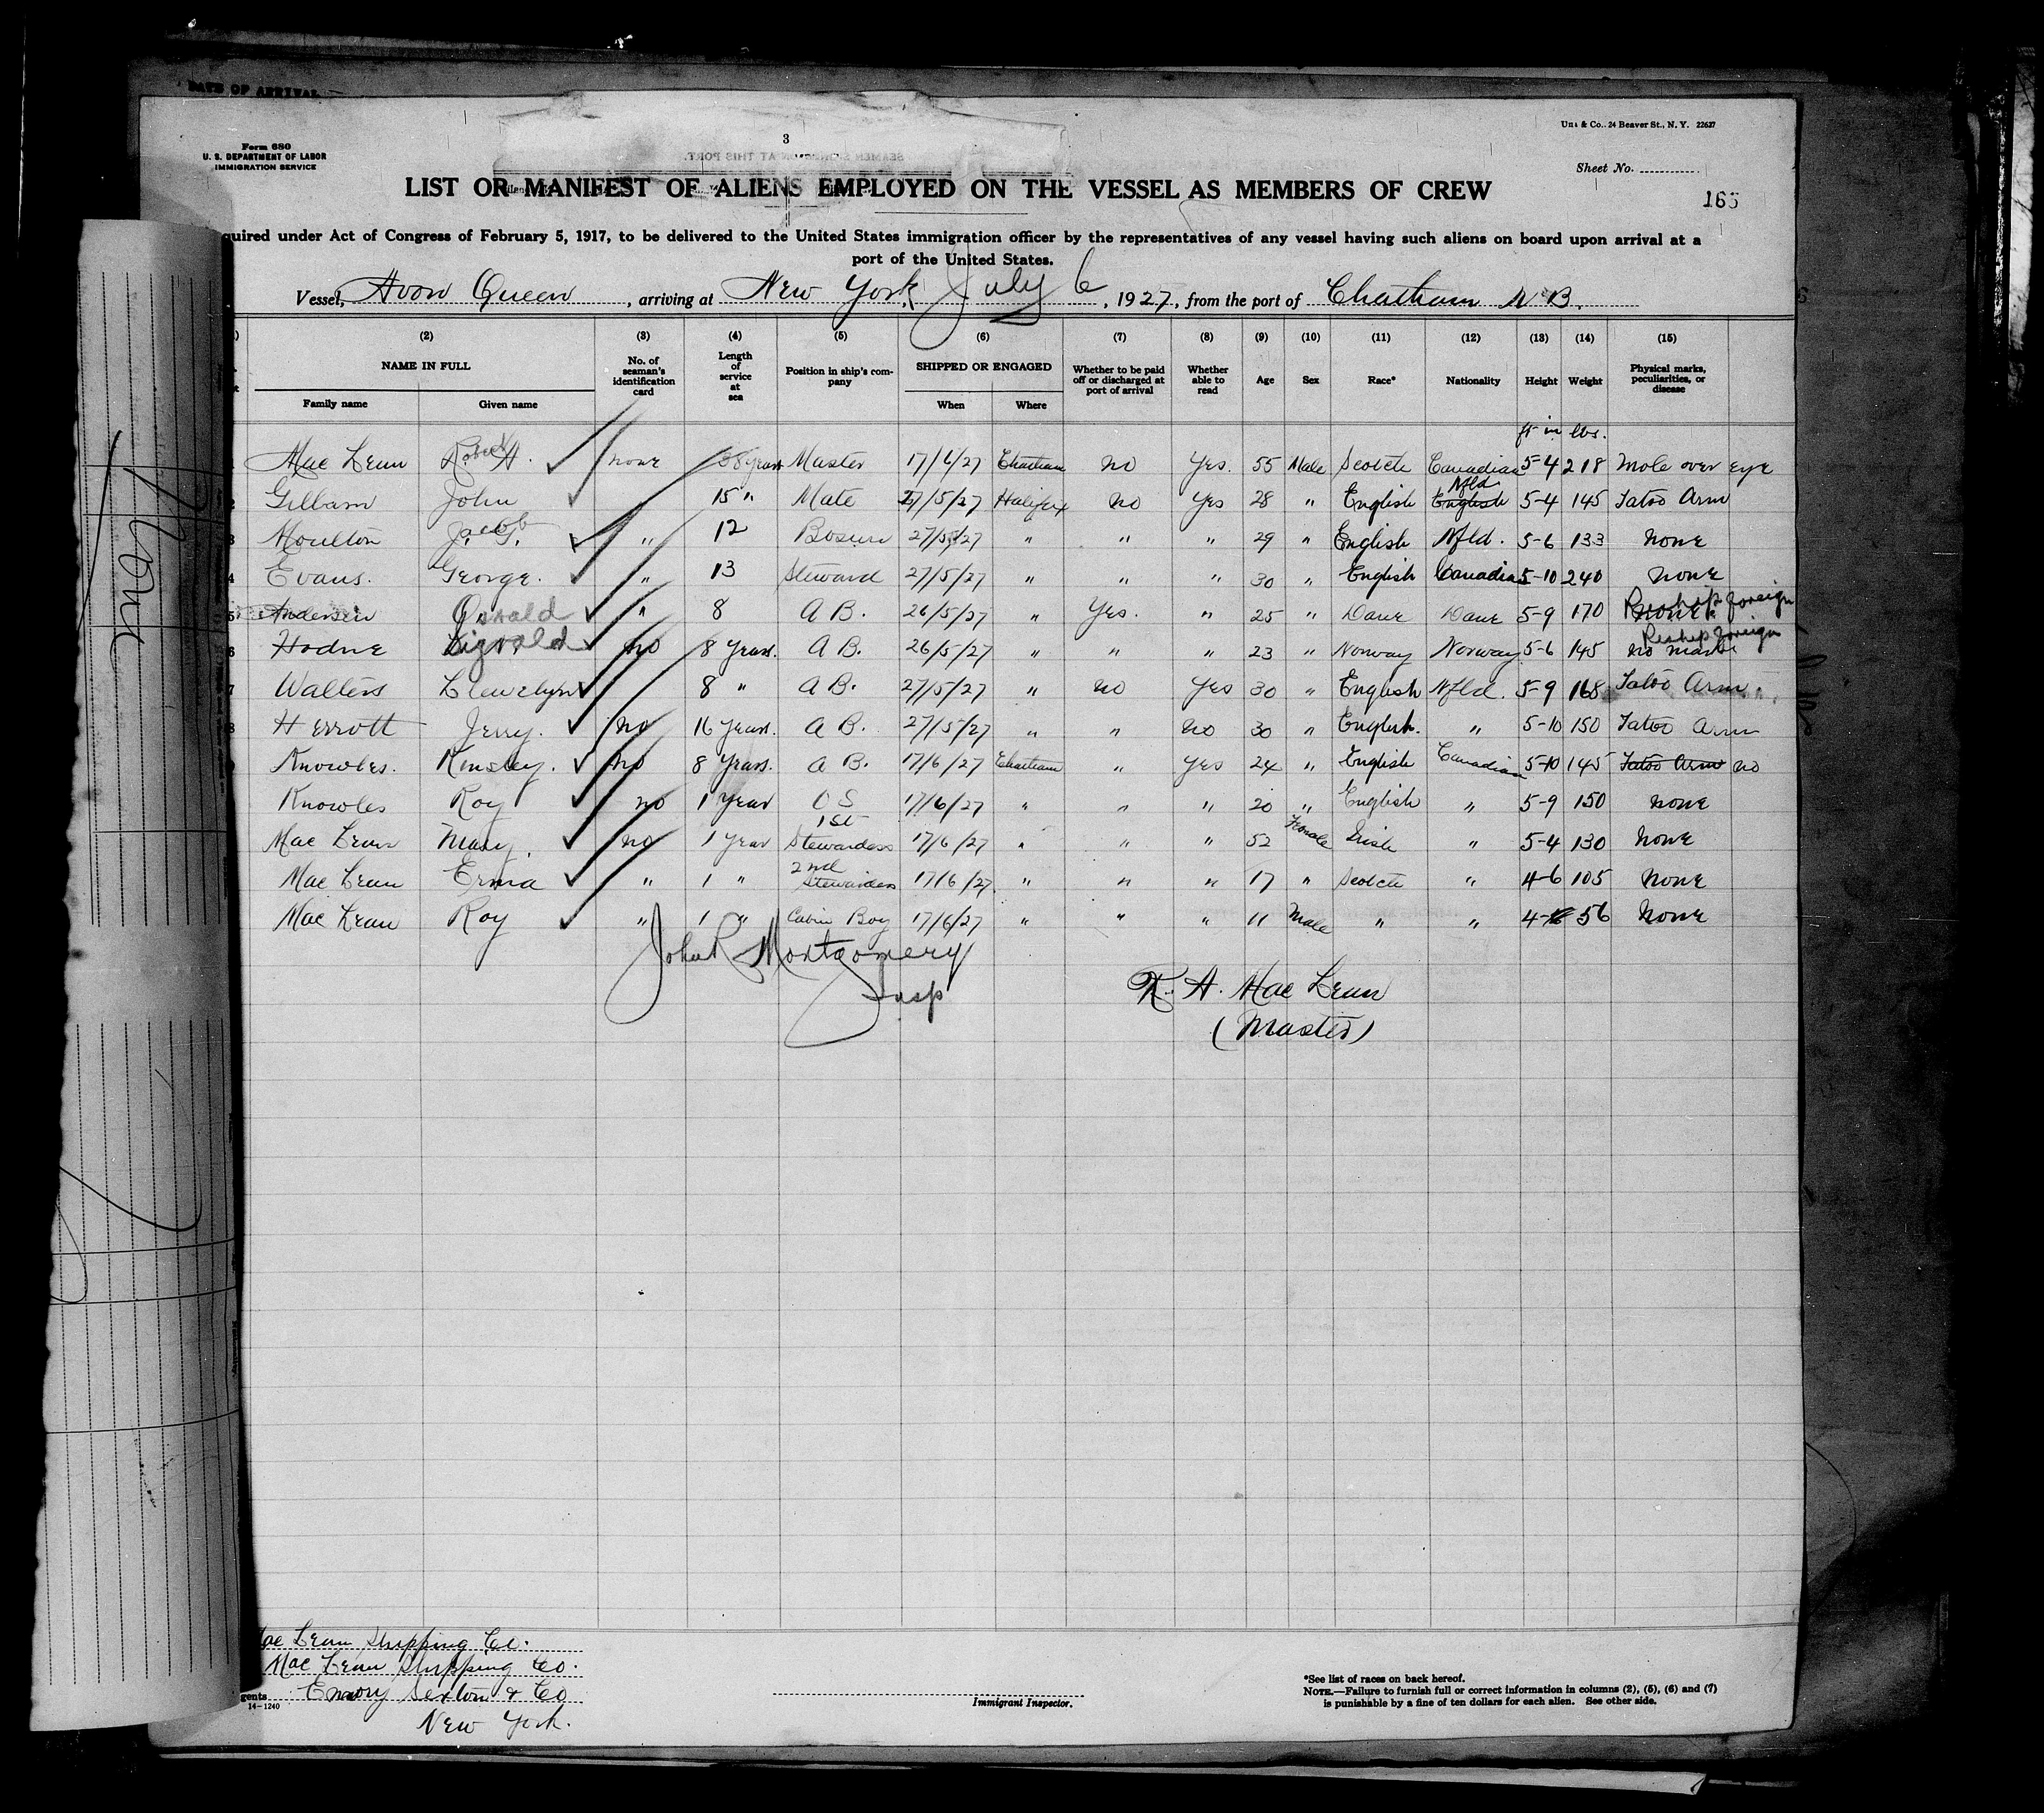 DATE OF ARRIVAL
Form 680
U. S. DEPARTMENT OF LABOR
IMMIGRATION SERVICE
3
SEAMEN AT THIS PORT.
& Co.. 24 Beaver St., N. Y. 22627
Sheet No.
LIST OR MANIFEST OF ALIENS EMPLOYED ON THE VESSEL AS MEMBERS OF CREW
165
quired under Act of Congress of February 5, 1917, to be delivered to the United States immigration officer by the representatives of any vessel having such aliens on board upon arrival at a
port of the United States.
Vessel, Avon Queen, arriving at New York, July 6, 1927, from the port of Chatham N B.
(2) (3) (4) (5) (6) (7) (8) (9) (10) (11) (12) (13) (14) (15)
NAME IN FULL Family name Given name No. of seaman's identification card Length of service at sea Position in ship's company SHIPPED OR ENGAGED When Where Whether to be paid off or discharged at port of arrival Whether able to read Age Sex Race* Nationality Height Weight Physical marks, peculiarities, or disease
ft in lbs.
Mac Lean Robert H. none 38 years Master 17/6/27 Chatham no Yes. 55 Male Scotch Canadian 5-4 218 Mole over eye
2 Gillam John " 15 " Mate 27/5/27 Halifax no Yes 28 " English English Nfld 5-4 145 Tatoo Arm
3 Moulton Jacob T. " 12 Bosun 27/5/27 " " " 29 " English Nfld. 5-6 133 none
4 Evans. George. " 13 Steward 27/5/27 " " " 30 " English Canadian 5-10 240 none
5 Andersen Osvald " 8 A B. 26/5/27 " Yes. " 25 " Dane Dane 5-9 170 none Reship foreign
6 Hodne Sigvald no 8 Years. A B. 26/5/27 " " " 23 " Norway Norway 5-6 145 no mark Reship foreign
7 Walters Llewelyn 8 " A B. 27/5/27 " no Yes 30 " English Nfld. 5-9 168 Tatoo Arm.
8 Herrott Jerry. no 16 Years. A B. 27/5/27 " " no 30 " English. " 5-10 150 Tatoo Arm
Knowles. Kinsley. no 8 Years. A B. 17/6/27 Chatham " Yes 24 " English Canadian 5-10 145 Tatoo Arm no
Knowles Roy no 1 Year O S 17/6/27 " " " 20 " English " 5-9 150 none
Mac Lean Mary. no 1 Year 1st Stewardess 17/6/27 " " " 52 Female Irish " 5-4 130 none
Mac Lean Erma " 1 " 2nd Stewardess 17/6/27 " " " 17 " Scotch " 4-6 105 none
Mac Lean Roy " 1 " Cabin Boy 17/6/27 " " " 11 Male " " 4- 56 none
John R Montgomery
Insp
R. H. Mac Lean
(Master)
Mac Lean Shipping Co.
Mac Lean Shipping Co.
gents Emory Sexton & Co
14-1240
New York.
Immigrant Inspector.
*See list of races on back hereof.
NOTE.—Failure to furnish full or correct information in columns (2), (5), (6) and (7)
is punishable by a fine of ten dollars for each alien. See other side.